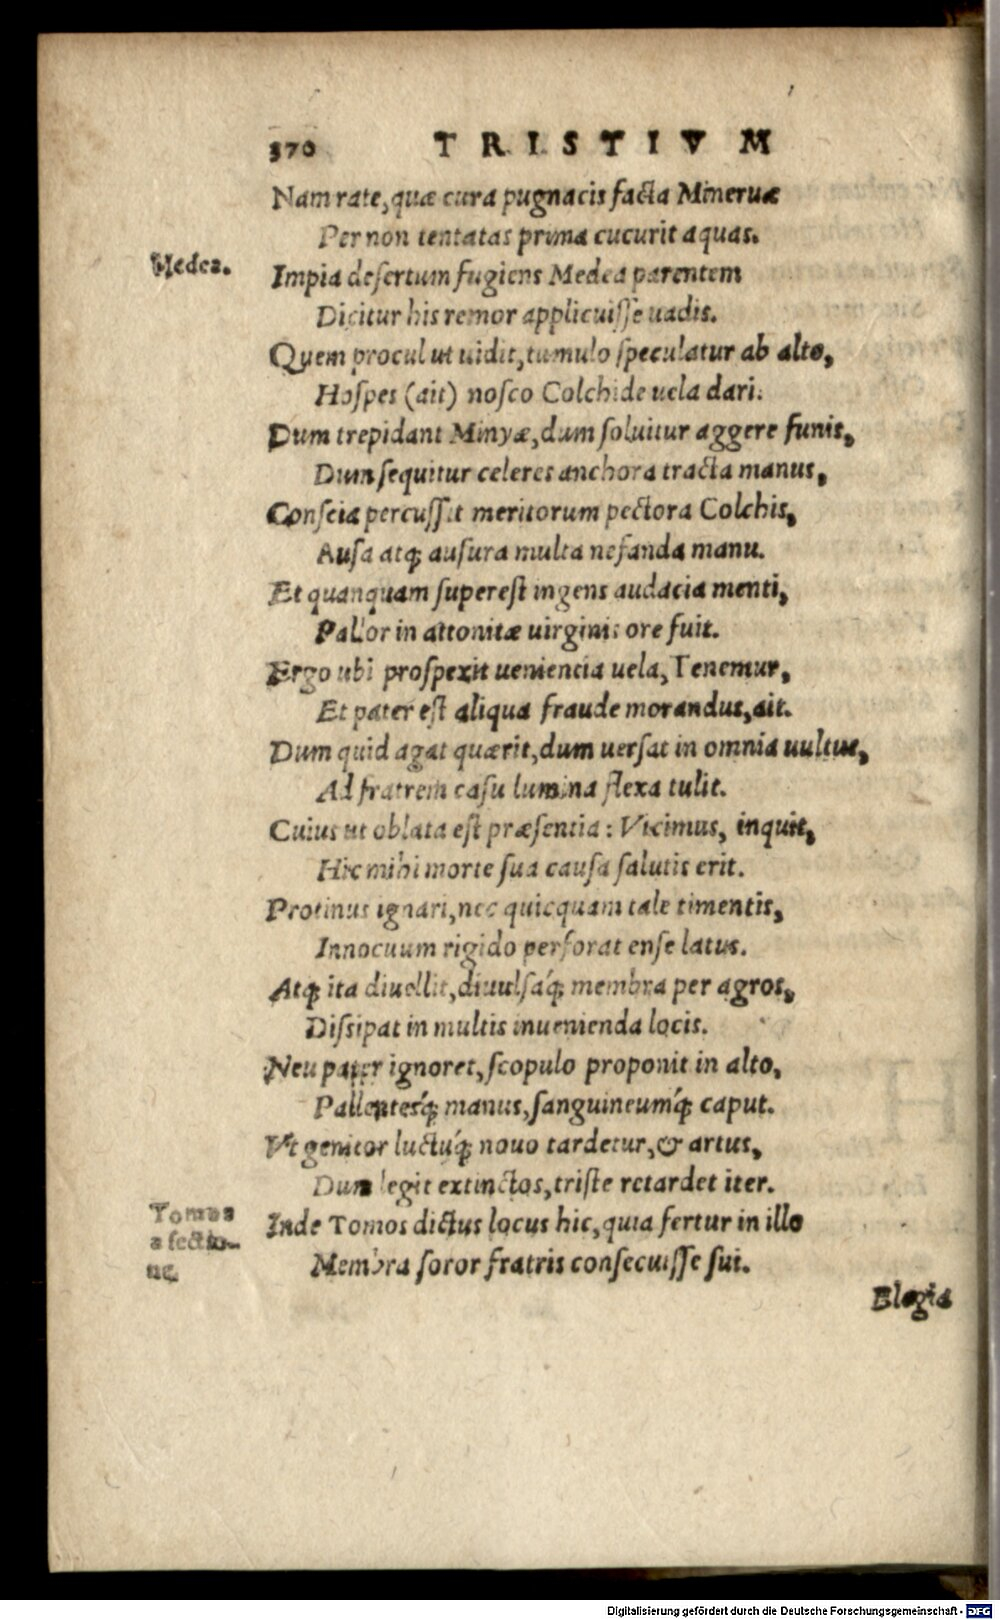 370 TRISTIVM
Nam rate, quæ cura pugnacis facta Mineruæ
Per non tentatas prima cucurit aquas.
Medea.
Impia desertum fugiens Medea parentem
Dicitur his remor applicuisse uadis.
Quem procul ut uidit, tumulo speculatur ab alto,
Hospes (ait) nosco Colchide uela dari.
Dum trepidant Minyæ, dum soluitur aggere funis,
Dum sequitur celeres anchora tracta manus,
Conscia percussit meritorum pectora Colchis,
Ausa atq; ausura multa nefanda manu.
Et quanquam superest ingens audacia menti,
Pallor in attonitæ uirginis ore fuit.
Ergo ubi prospexit ueniencia uela, Tenemur,
Et pater est aliqua fraude morandus, ait.
Dum quid agat quærit, dum uersat in omnia uultus,
Ad fratrem casu lumina flexa tulit.
Cuius ut oblata est præsentia: Vicimus, inquit,
Hic mihi morte sua causa salutis erit.
Protinus ignari, nec quicquam tale timentis,
Innocuum rigido perforat ense latus.
Atq; ita diuellit, diuulsáq; membra per agros,
Dissipat in multis inuenienda locis.
Neu pater ignoret, scopulo proponit in alto,
Pallentesq́; manus, sanguineumq́; caput.
Vt genitor luctuq́; nouo tardetur, & artus,
Dum legit extinctos, triste retardet iter.
Tomos
a sectio-
ne.
Inde Tomos dictus locus hic, quia fertur in illo
Membra soror fratris consecuisse sui.
Elegia
Digitalisierung gefördert durch die Deutsche Forschungsgemeinschaft - DFG